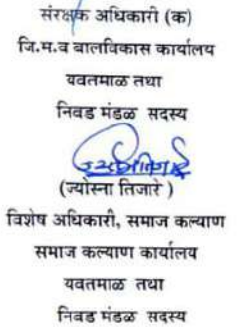 संरक्षक अधिकारी (क)
जि.म.व बालविकास कार्यालय
यवतमाळ तथा
निवड मंडळ सदस्य
(ज्योस्ना तिजारे )
विशेष अधिकारी, समाज कल्याण
समाज कल्याण कार्यालय
यवतमाळ तथा
निवड मंडळ सदस्य